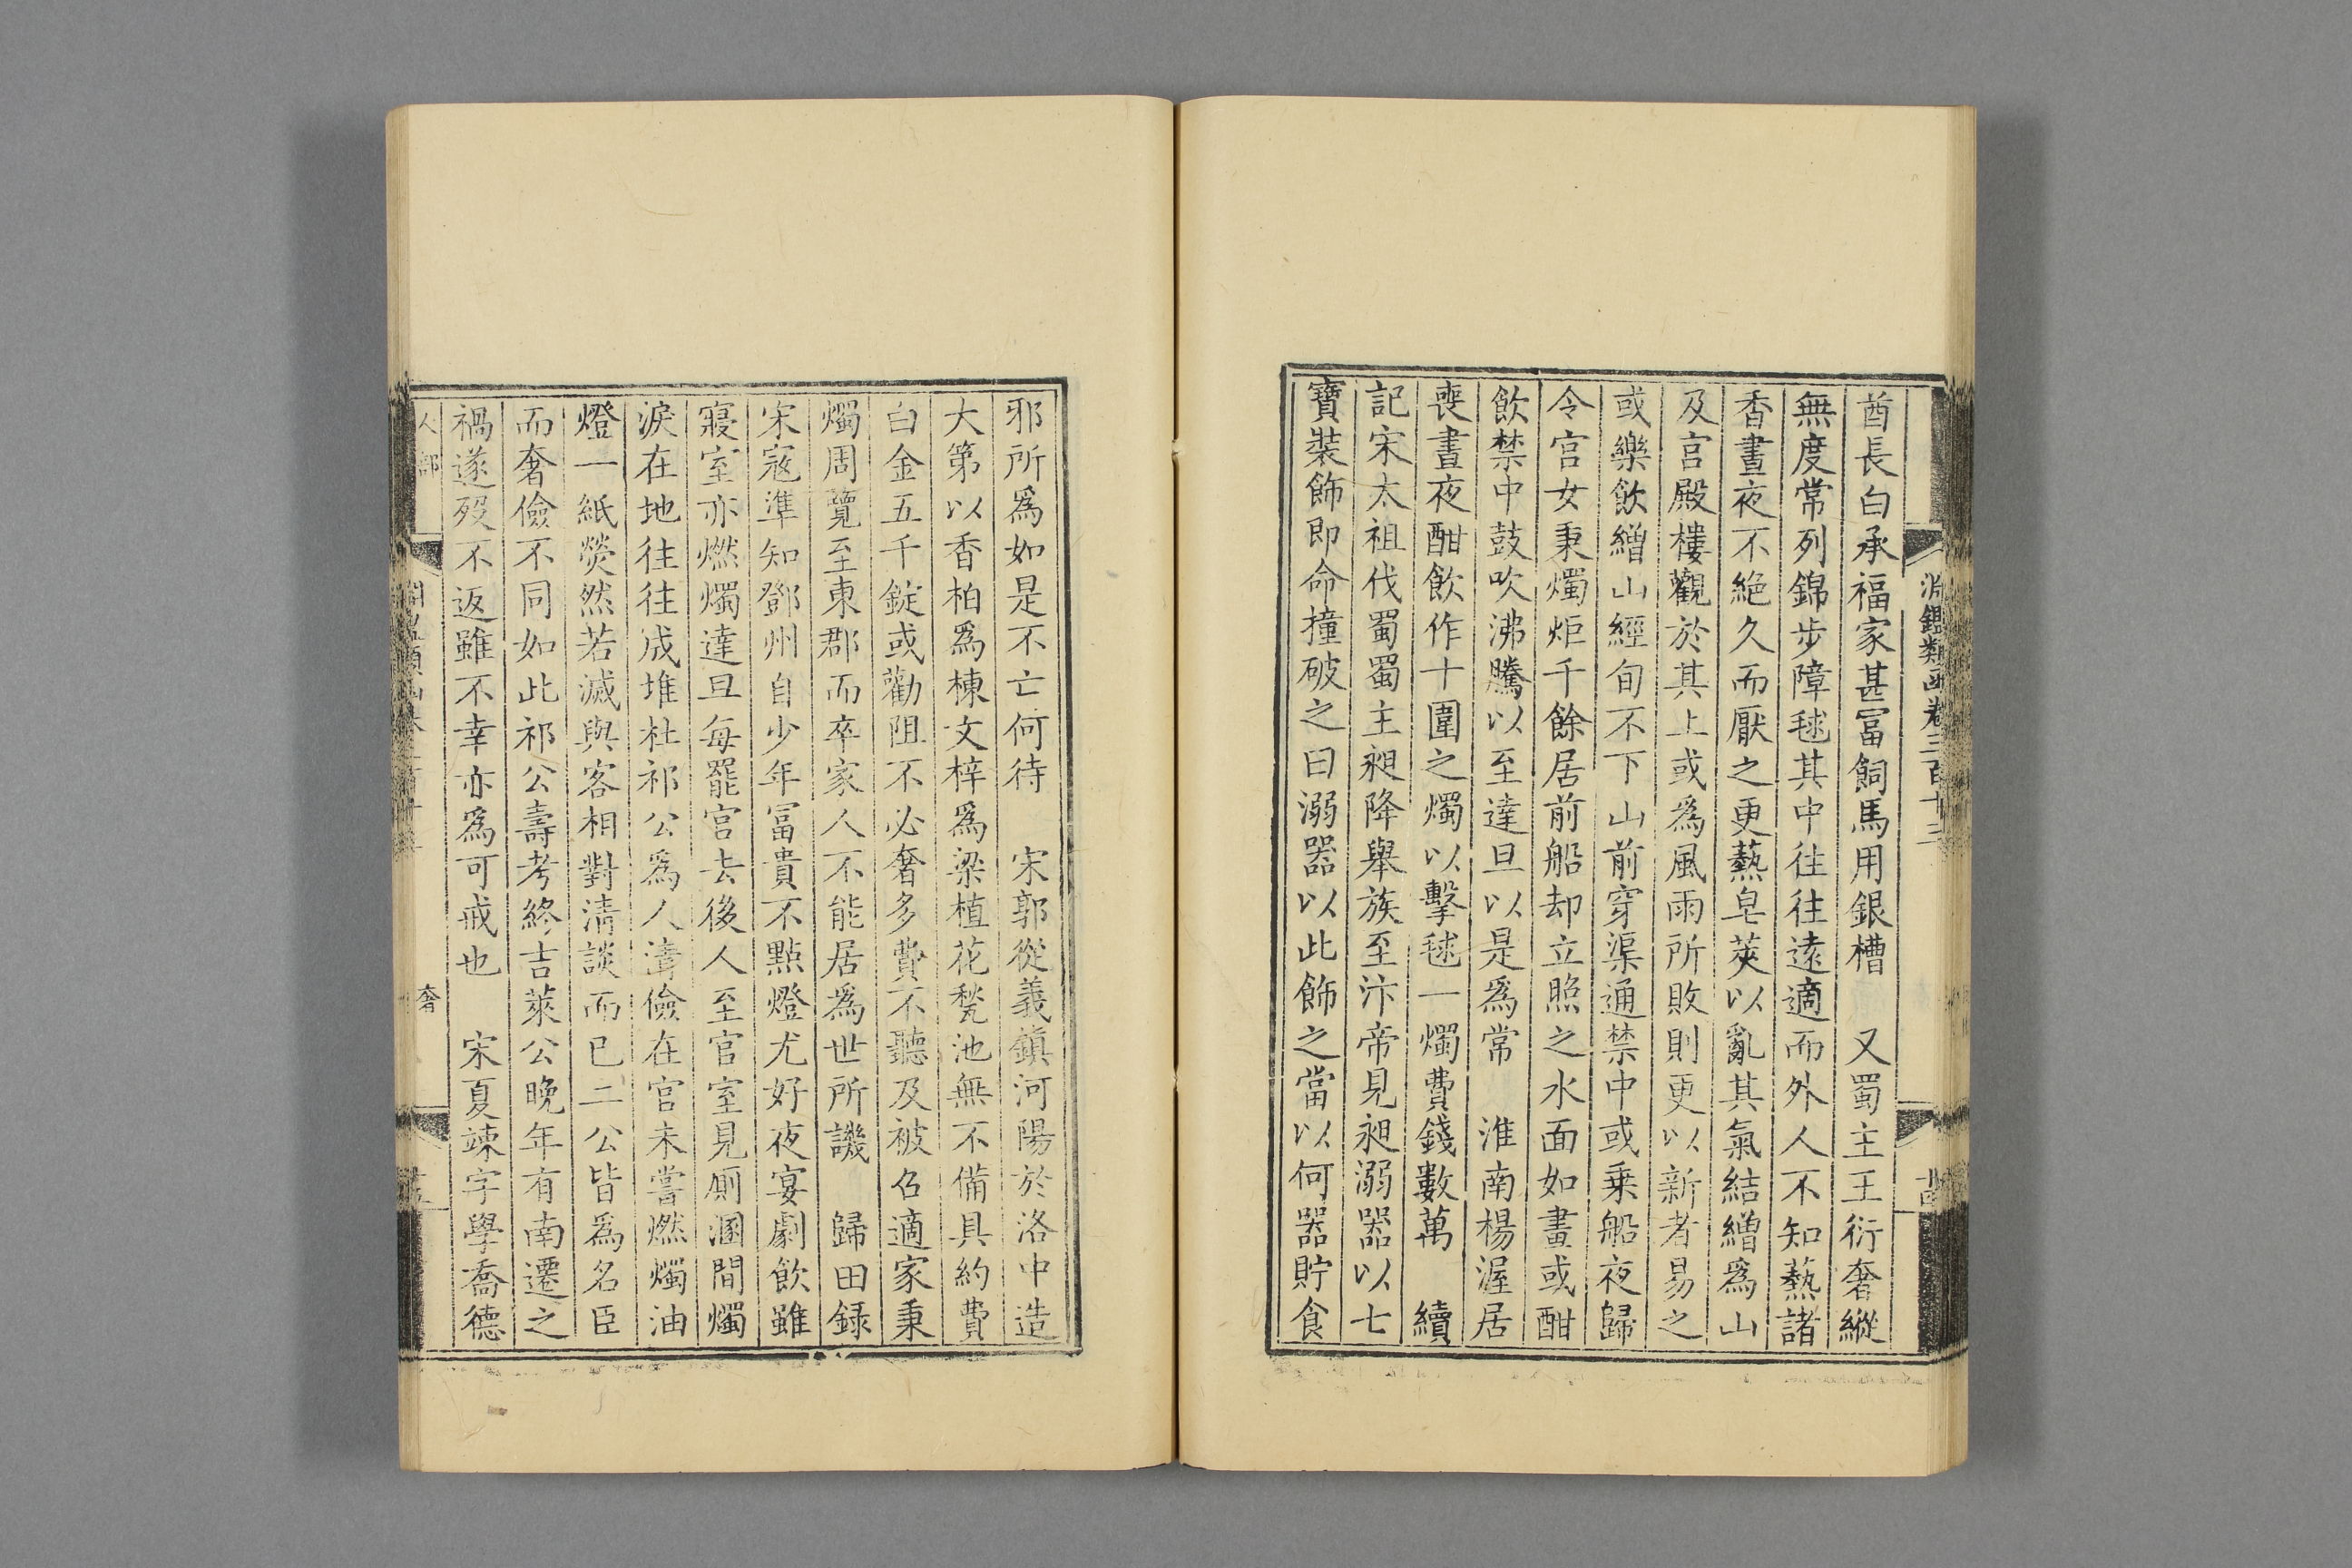 淵鑑類函卷三百十三
酋長白承福家甚冨飼馬用銀槽　又蜀主王衍奢縱
無度常列錦步障毬其中往往遠適而外人不知爇諸
香晝夜不絶久而厭之更爇皂莢以亂其氣結繒爲山
及宫殿樓觀於其上或爲風雨所敗則更以新者易之
或樂飲繒山經旬不下山前穿渠通禁中或乗船夜歸
令宫女秉燭炬千餘居前船却立照之水面如晝或酣
飲禁中鼓吹沸騰以至達旦以是爲常　淮南楊渥居
喪晝夜酣飲作十圍之燭以擊毬一燭費錢數萬　續
記宋太祖伐蜀蜀主昶降舉族至汴帝見昶溺器以七
寶裝飾即命撞破之曰溺器以此飾之當以何器貯食
邪所爲如是不亡何待　宋郭從義鎮河陽於洛中造
大第以香柏爲棟文梓爲梁植花甃池無不備具約費
白金五千錠或勸阻不必奢多費不聽及被召適家秉
燭周覽至東郡而卒家人不能居爲世所譏　歸田録
宋宼準知鄧州自少年冨貴不點燈尤好夜宴劇飲雖
寢室亦燃燭達旦每罷官去後人至官室見厠溷間燭
淚在地往往成堆杜祁公爲人清儉在官未嘗燃燭油
燈一紙熒然若滅與客相對清談而已二公皆爲名臣
而奢儉不同如此祁公壽考終吉萊公晚年有南遷之
禍遂歿不返雖不幸亦爲可戒也　宋夏竦字學喬德
人部
奢